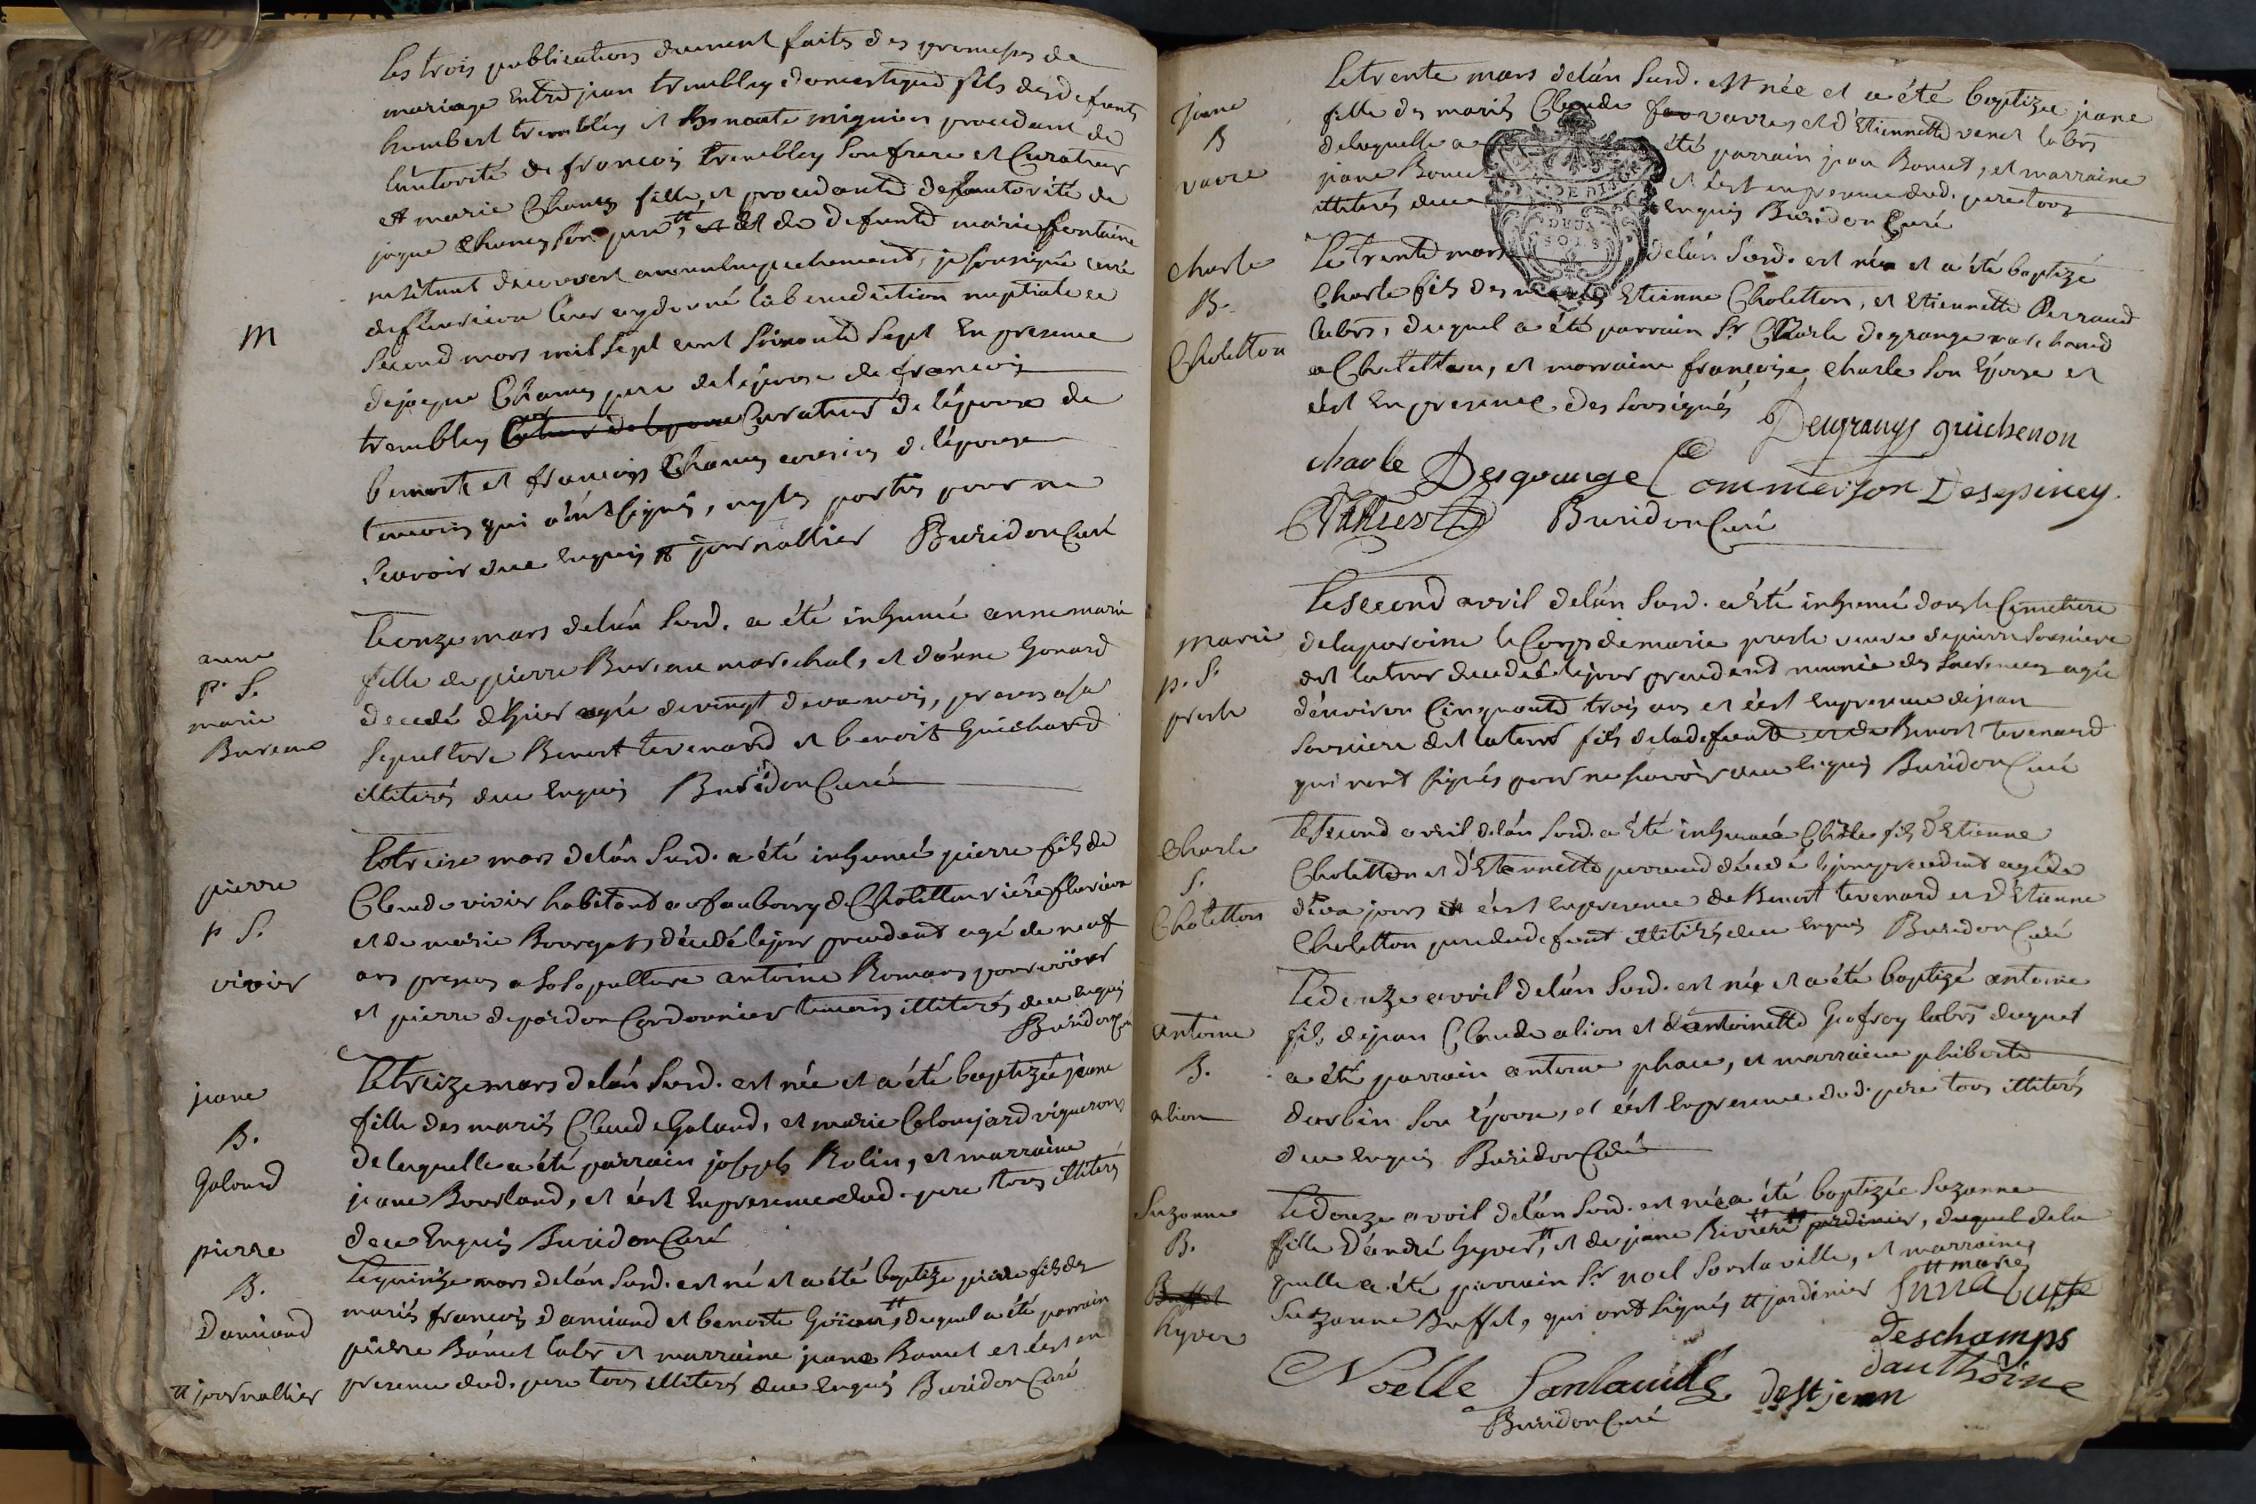 les trois publications duement faites des promesses de
mariage Entre jean trembley domestique fils des defunts
humbert trembley et Benoite miguier procedant de
l'autorité de francois trembley son frere et Curateur
et marie Chanes fille, et procedante de l'autorité de
jaque Chanes son pere #, et de defunte marie fontaine
decouvert aucun Empechement, je soussigné curé
de fleurieu leur ay donné la benediction nuptiale ce
M
second mars mil sept cent soixante sept En presence
de jaque Chanes pere de l'épouse de francois
trembley Curateur de l'epoux de
benoit et francois Chanes cousins de l'épouse
temoins qui n'ont signé, ny les parties pour ne
scavoir de ce Enquis # journallier Buridon Curé
anne
p. S.
marie
Bureau
Le onze mars de l'an susd. a été inhumé anne marie
fille de pierre Bureau marechal, et d'anne Gonard
decedé d'hier agée de vingt deux mois, presens a sa
sepulture Benoit tevenard et benoit Guichard
illiterés de ce Enquis Buridon Curé
pierre
p S.
vivier
Le treize mars de l'an susd. a été inhumé pierre fils de
Claude vivier habitant au faubourg de Chatillon riere fleurieu
et de marie Bourget, décedé le jour precedent agé de neuf
ans presens a sa sepulture antoine Romans
et pierre depardon Cordonnier temoins illiterés de ce Enquis
Buridon Cu
jeane
B.
Galand
Le treize mars de l'an susd. est née et a été baptizée jeane
fille des mariés Claude Galand, et marie Colomjard vignerons
de laquelle a été parrain joseph Rolin, et marraine
jeane Bourland, et c'est En presence dud. pere tous illiterés
de ce Enquis Buridon Curé
pierre
B.
Damiand
# journallier
Le quinze mars de l'an susd. est né et a été baptizé pierre fils des
mariés francois damiand et benoite #, duquel a été parrain
pierre Bonnet labr et marraine jeane Bonnet et c'est en
presence dud. pere tous illiterés de ce Enquis Buridon Curé
jeane
B
vavre
Le trente mars de l'an susd. est née et a été baptizée jeane
fille des mariés Claude vavre et d'Etiennette venet labrs
de laquelle a été parrain jean Bonnet, et marraine
jeane Bonnet et c'est en presence dud. pere tous
illiterés de ce Enquis Buridon Curé
DEUX
SOLS
charle
B.
Choletton
Le trente mars de l'an susd. est né et a été baptizé
Charle fils des mariés Etienne Choletton, et Etiennette Perraud
labrs, duquel a été parrain Sr. Charle degrange marchand
a Chatillon, et marraine françoise Charle son Epouse et
c'est En presence des soussignés Desgranges guichenon
charle Desgrange Commerson Desepiney.
Buridon Curé
marie
p. S.
preste
Le second avril de l'an susd. a été inhumé dans le Cimetiere
de la paroisse le Corps de marie preste veuve de pierre
decedée le jour precedent munie des sacremens agée
d'environ Cinquante trois ans et c'est En presence de jean
fils de lad. defunte et de Benoit tevenard
qui n'ont signés pour ne scavoir de ce Enquis Buridon Curé
Charle
S.
Choletton
Le second avril de l'an susd. a été inhumé Charle fils d'Etienne
Choletton et d'Etiennette perraud décedé le jour precedent agé de
deux jours et c'est En presence de Benoit tevenard et d'Etienne
Choletton pere dud. defunt illiterés de ce Enquis Buridon Curé
antoine
B.
alion
Le douze avril de l'an susd. est né et a été baptizé antoine
fils de jean Claude alion et d'antoinette Gofroy labrs duquel
a été parrain antoine , et marraine philiberte
darbin son Epouse, et c'est En presence dud. pere tous illiterés
de ce Enquis Buridon Curé
Suzanne
B.
Buffet
hyver
Le douze avril de l'an susd. est née a été baptizée Suzanne
fille d'andré hyver #, et de jeane Riviere jardinier, duquel de la
quelle a été parrain Sr noel Sonlaville, et marraine
Suzanne Buffet, qui ont signés # jardinier
# marie
Deschamps
dauthoine
Noelle Sonlaville de St jean
Buridon Curé